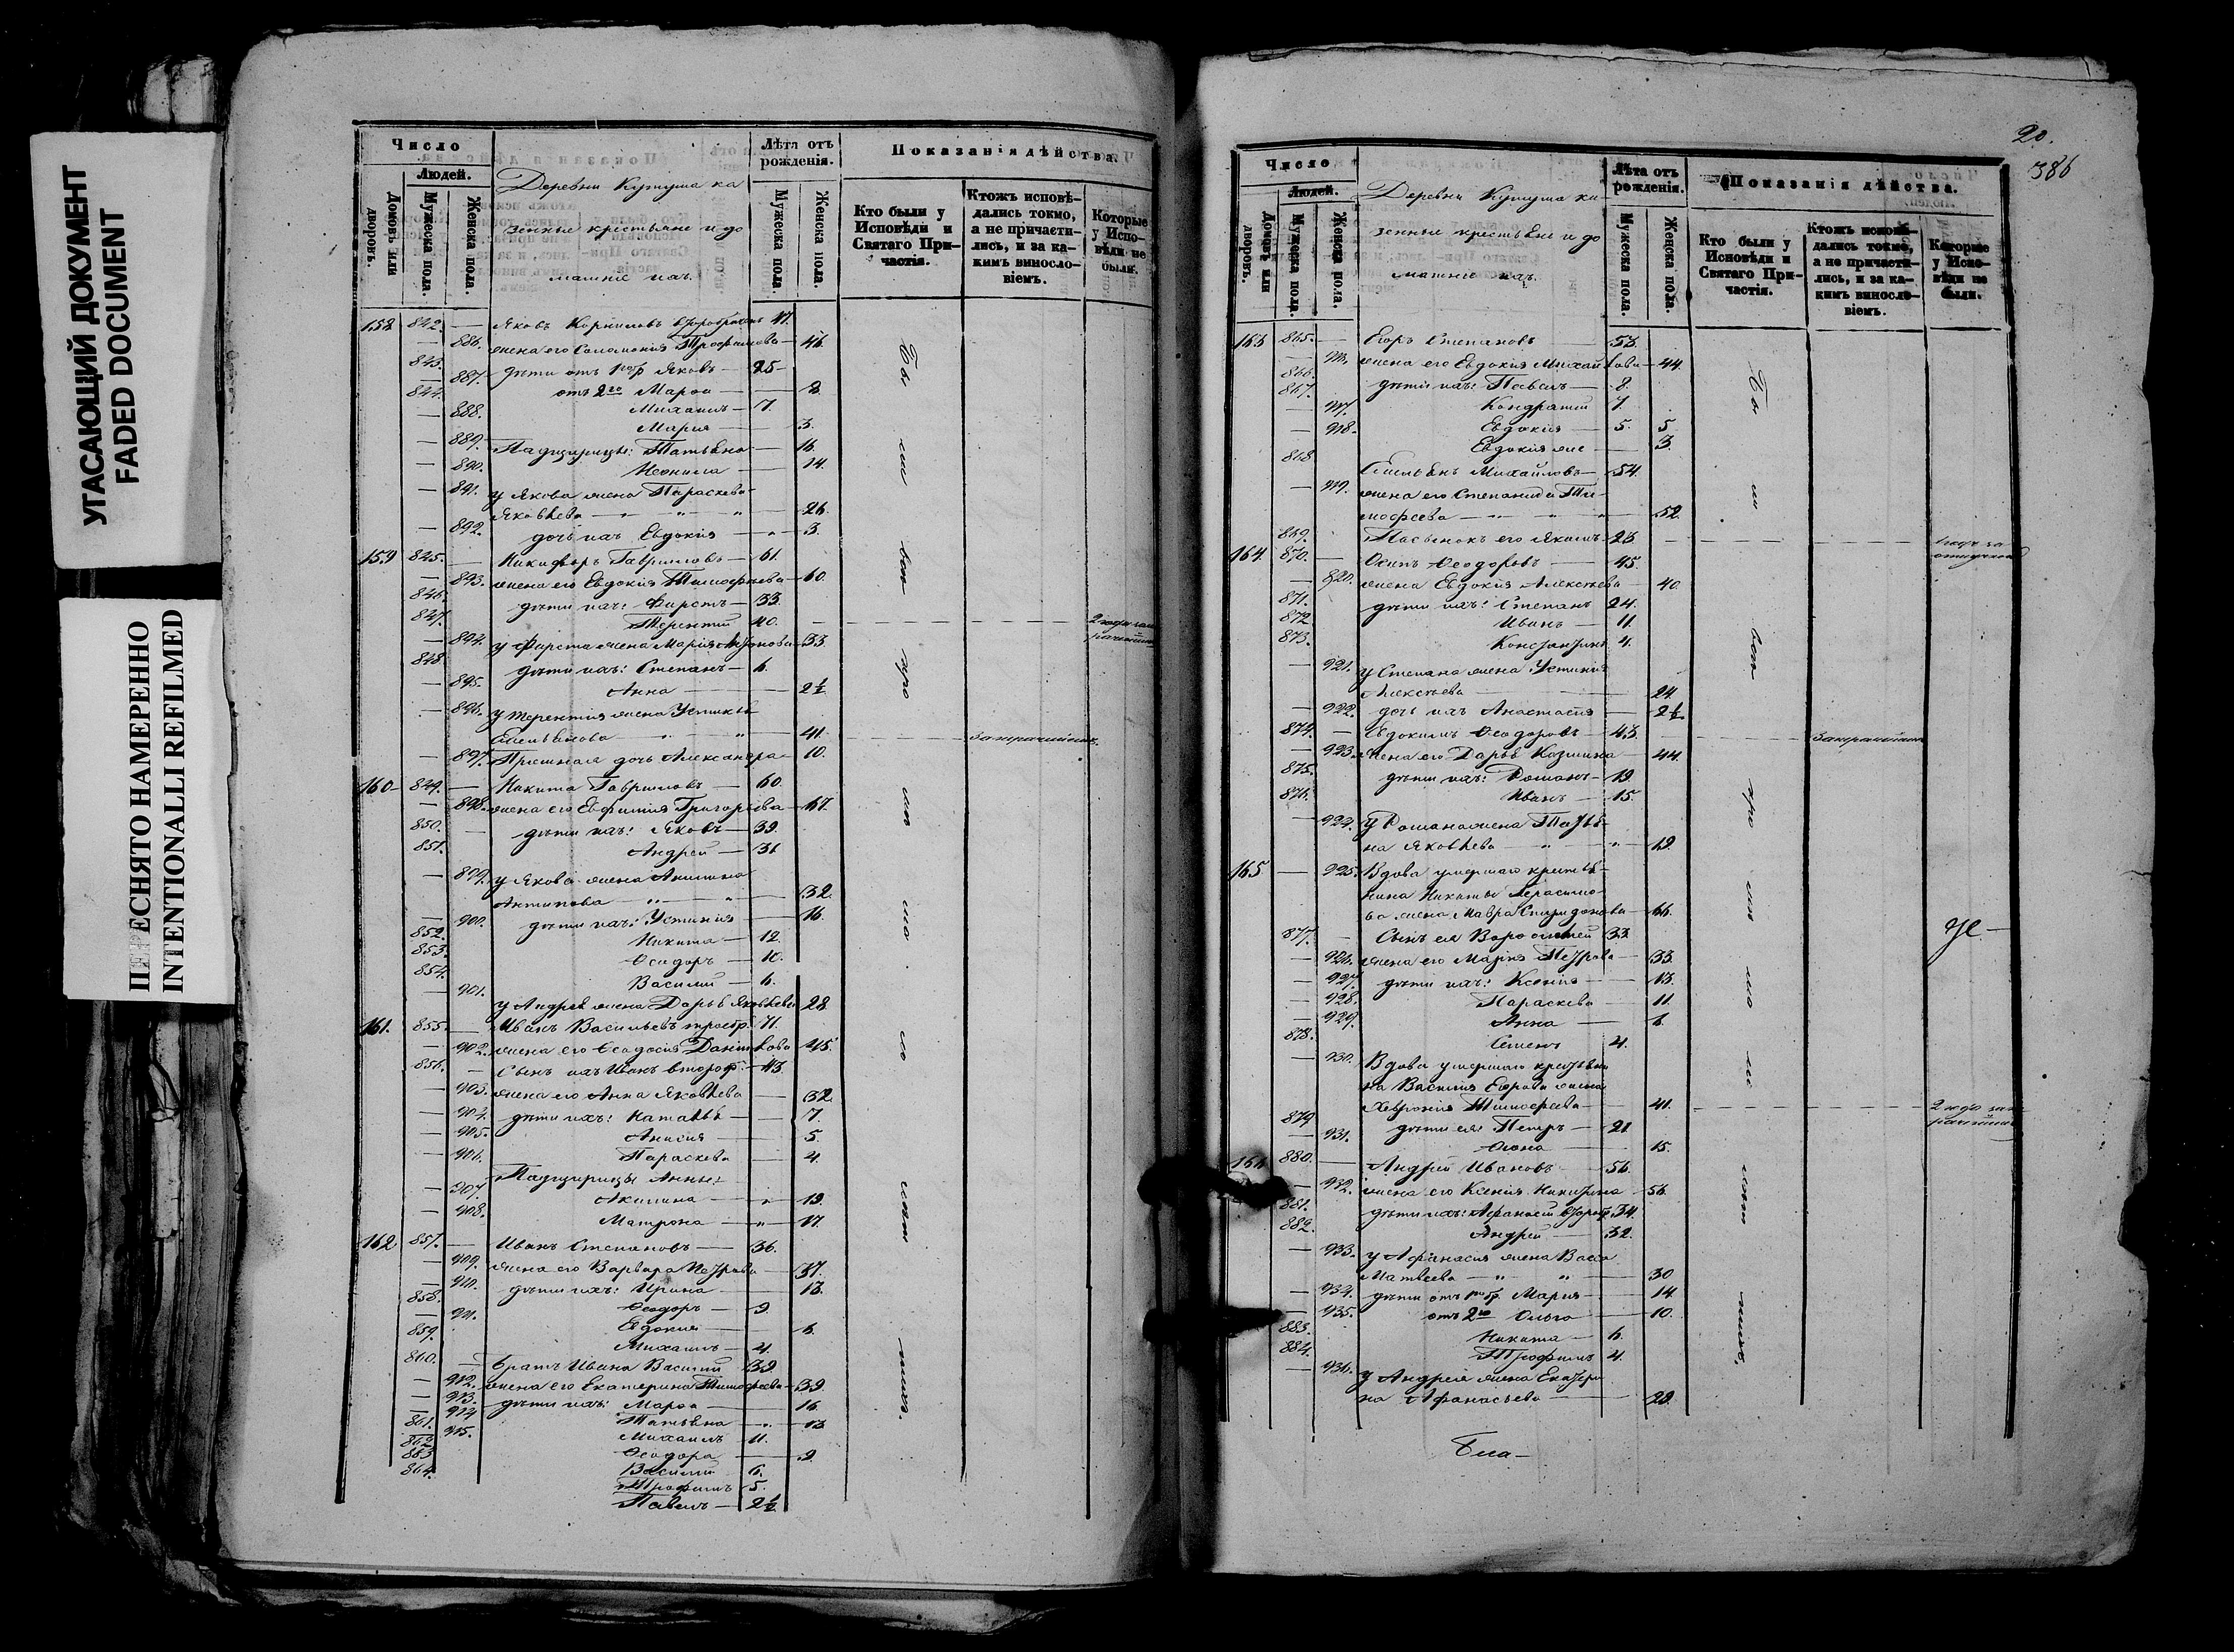 УГАСАЮЩИЙ ДОКУМЕНТ
FADED DOCUMENT
ПЕРЕСНЯТО НАМЕРЕННО
INTENTIONALLI REFILMED
Число
Людей.
Домовъ или дворовъ.
Мужеска пола.
Женска пола.
Деревни Купуша ка
зенные крестьяне и до
машніе ихъ.
Лѣта отъ рожденія.
Мужеска пола.
Женска пола.
Показанія дѣйства.
Кто были у Исповѣди и Святаго При-частія.
Ктожъ исповѣ-дались токмо, а не причасти-лись, и за ка-кимъ винословіемъ.
Которые у Испо-вѣди не были.
158 842. — Яковъ Корниловъ 47.
— 886. жена его Соломонія Трофимова — 46.
843. дѣти отъ Яковъ — 25
— 887. отъ 2го Марѳа — 8.
844. Михаилъ — 7.
— 888. Мария — 3.
— 889. Падщерицы: Татьяна — 16.
— 890. Неонила — 14.
— 891. у Якова жена Параскева
Яковлева — 26.
— 892. дочь ихъ Евдокія — 3.
159 845. — Никифоръ Гавриловъ — 61.
— 893. жена его Евдокія Тимофеева — 60.
846. дѣти ихъ: Фирстъ — 33.
847. Терентій 40.
— 894. у Фирста жена Марія Антонова — 33.
848. дѣти ихъ: Степанъ — 6.
— 895. Анна — 2½
— 896. у Терентія жена Устинья
Емельянова — 41.
— 897. дочь Александра — 10.
160 849. — Никита Гавриловъ — 60.
— 898. жена его Евфимія Григорьева — 67.
850. — дѣти ихъ: Яковъ — 39.
851. Андрей — 31
— 899. у Якова жена Акилина
Антипова — 32.
— 900. дѣти ихъ: Устинія — 16.
852. Никита — 12.
853. Ѳеодоръ — 10.
854. Василий — 6.
— 901. у Андрея жена Дарья Яковлева 28
161. 855. — Иванъ Васильевъ 71.
— 902. жена его Ѳеодосія 45.
856. — Сынъ ихъ Иванъ 43.
— 903. жена его Анна Яковлева — 32.
— 904. дѣти ихъ: Наталья — 7.
— 905. Анисія — 5.
— 906. Параскева — 4.
Падщерицы Анны:
— 907. Акилина — 19.
— 908. Матрона — 17.
162 857. — Иванъ Степановъ — 36.
— 909. жена его Варвара Петрова — 37.
— 910. дѣти ихъ: Ирина — 13.
858. Ѳеодоръ — 9.
911. Евдокия — 6.
859. Михаилъ — 4.
860. — братъ Ивана Василий 39
— 912. жена его Екатерина Тимофеева — 39
— 913. дѣти ихъ: Марѳа — 16.
— 914 Татьяна — 13
861. Михаилъ — 11.
915. Ѳеодора — 9
862 Василий 6.
863 Трофимъ 5.
864. Павелъ — 2½
20.
386
Число
Людей.
Домовъ или дворовъ.
Мужеска пола.
Женска пола.
Деревни Купуша ка-
зенные крестьяне и до
машніе ихъ.
Лѣта отъ рожденія.
Мужеска пола.
Женска пола.
Показанія дѣйства.
Кто были у Исповѣди и Святаго При-частія.
Ктожъ исповѣ-дались токмо, а не причасти-лись, и за ка-кимъ винословіемъ.
Которые у Испо-вѣди не были.
163 865. — Егоръ Степановъ — 53.
— 916. жена его Евдокія Михайлова — 44.
866. дѣти ихъ: Павелъ — 8.
867. Кондратій 7.
— 917. Евдокія — 5. 5
— 918. Евдокія же — 3.
868 Емельянъ Михайловъ — 54.
— 919. жена его Степанида Ти-
мофеева — 52.
869. Пасынокъ его Якимъ — 23
164 870. — Осипъ Ѳеодоровъ — 45.
— 920. жена Евдокія Алексеева — 40.
871. дѣти ихъ: Степанъ 24.
872 Иванъ — 11.
873. Константинъ 4.
— 921. у Степана жена Устинія
Алексеева — 24
— 922. дочь ихъ Анастасія — 2½.
874. — Евдокимъ Ѳеодоровъ — 43
— 923. жена его Дарья Козмина 44.
875. дѣти ихъ: Романъ — 19.
876. Иванъ — 15.
— 924. у Романа жена Татья-
на Яковлева — 19.
165 — 925. Вдова умершаго крестья-
нина Никиты Герасимо-
ва жена Мавра Спиридонова — 66.
877. — Сынъ ея Варѳоломей 33
— 926. жена его Марія Петрова — 33.
— 927. дѣти ихъ: Ксенія — 13.
— 928. Параскева — 11.
— 929. Анна — 6.
878. Семенъ 4.
— 930. Вдова умершаго крестьяни
на Василія жена
Хевронія Тимофеева — 41.
879 дѣти ея: Петръ — 21
— 931. 15.
166 880. — Андрей Ивановъ — 56.
— 932. жена его Ксенія Никитина — 56.
881. дѣти ихъ: Афанасій 34.
882. Андрей — 32.
— 933. у Афанасія жена Васса
Матвеева — 30
— 934. дѣти отъ Мария — 14.
— 935. отъ 2го Ольга — 10.
883. Никита — 6.
884. Трофимъ 4.
— 936. у Андрея жена Екатери
на Афанасьева — 28.